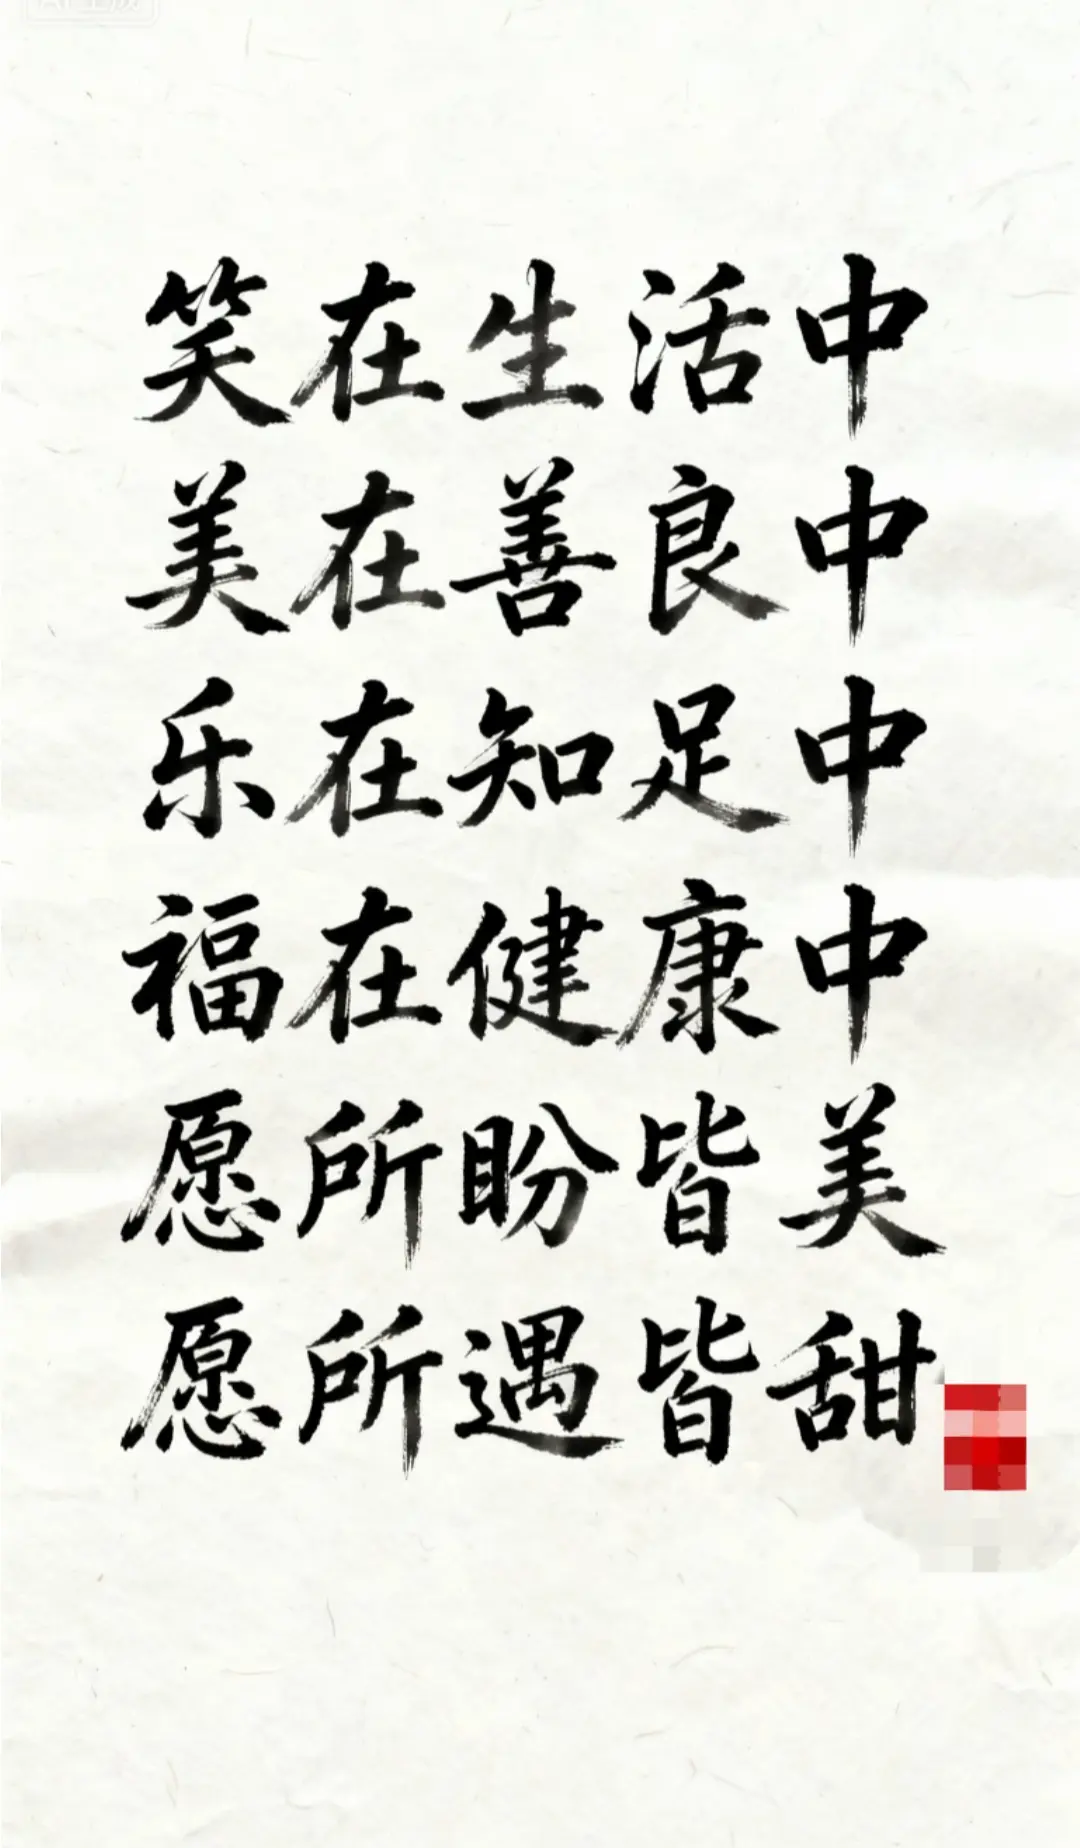 笑在生活中
美在善良中
乐在知足中
福在健康中
愿所盼皆美
愿所遇皆甜